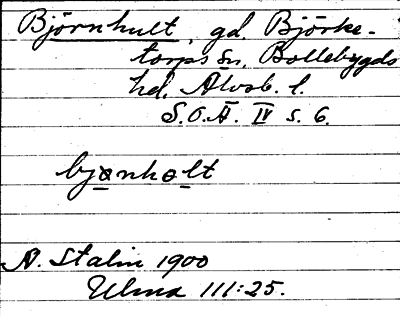 Björnhult, gd. Björke-
torps sn, Bollebygds
hd. Älvsb. l.
S.O.Ä. IV s. 6.
bjɑnhɷlt
A. Stalin 1900
Ulma 111:25.